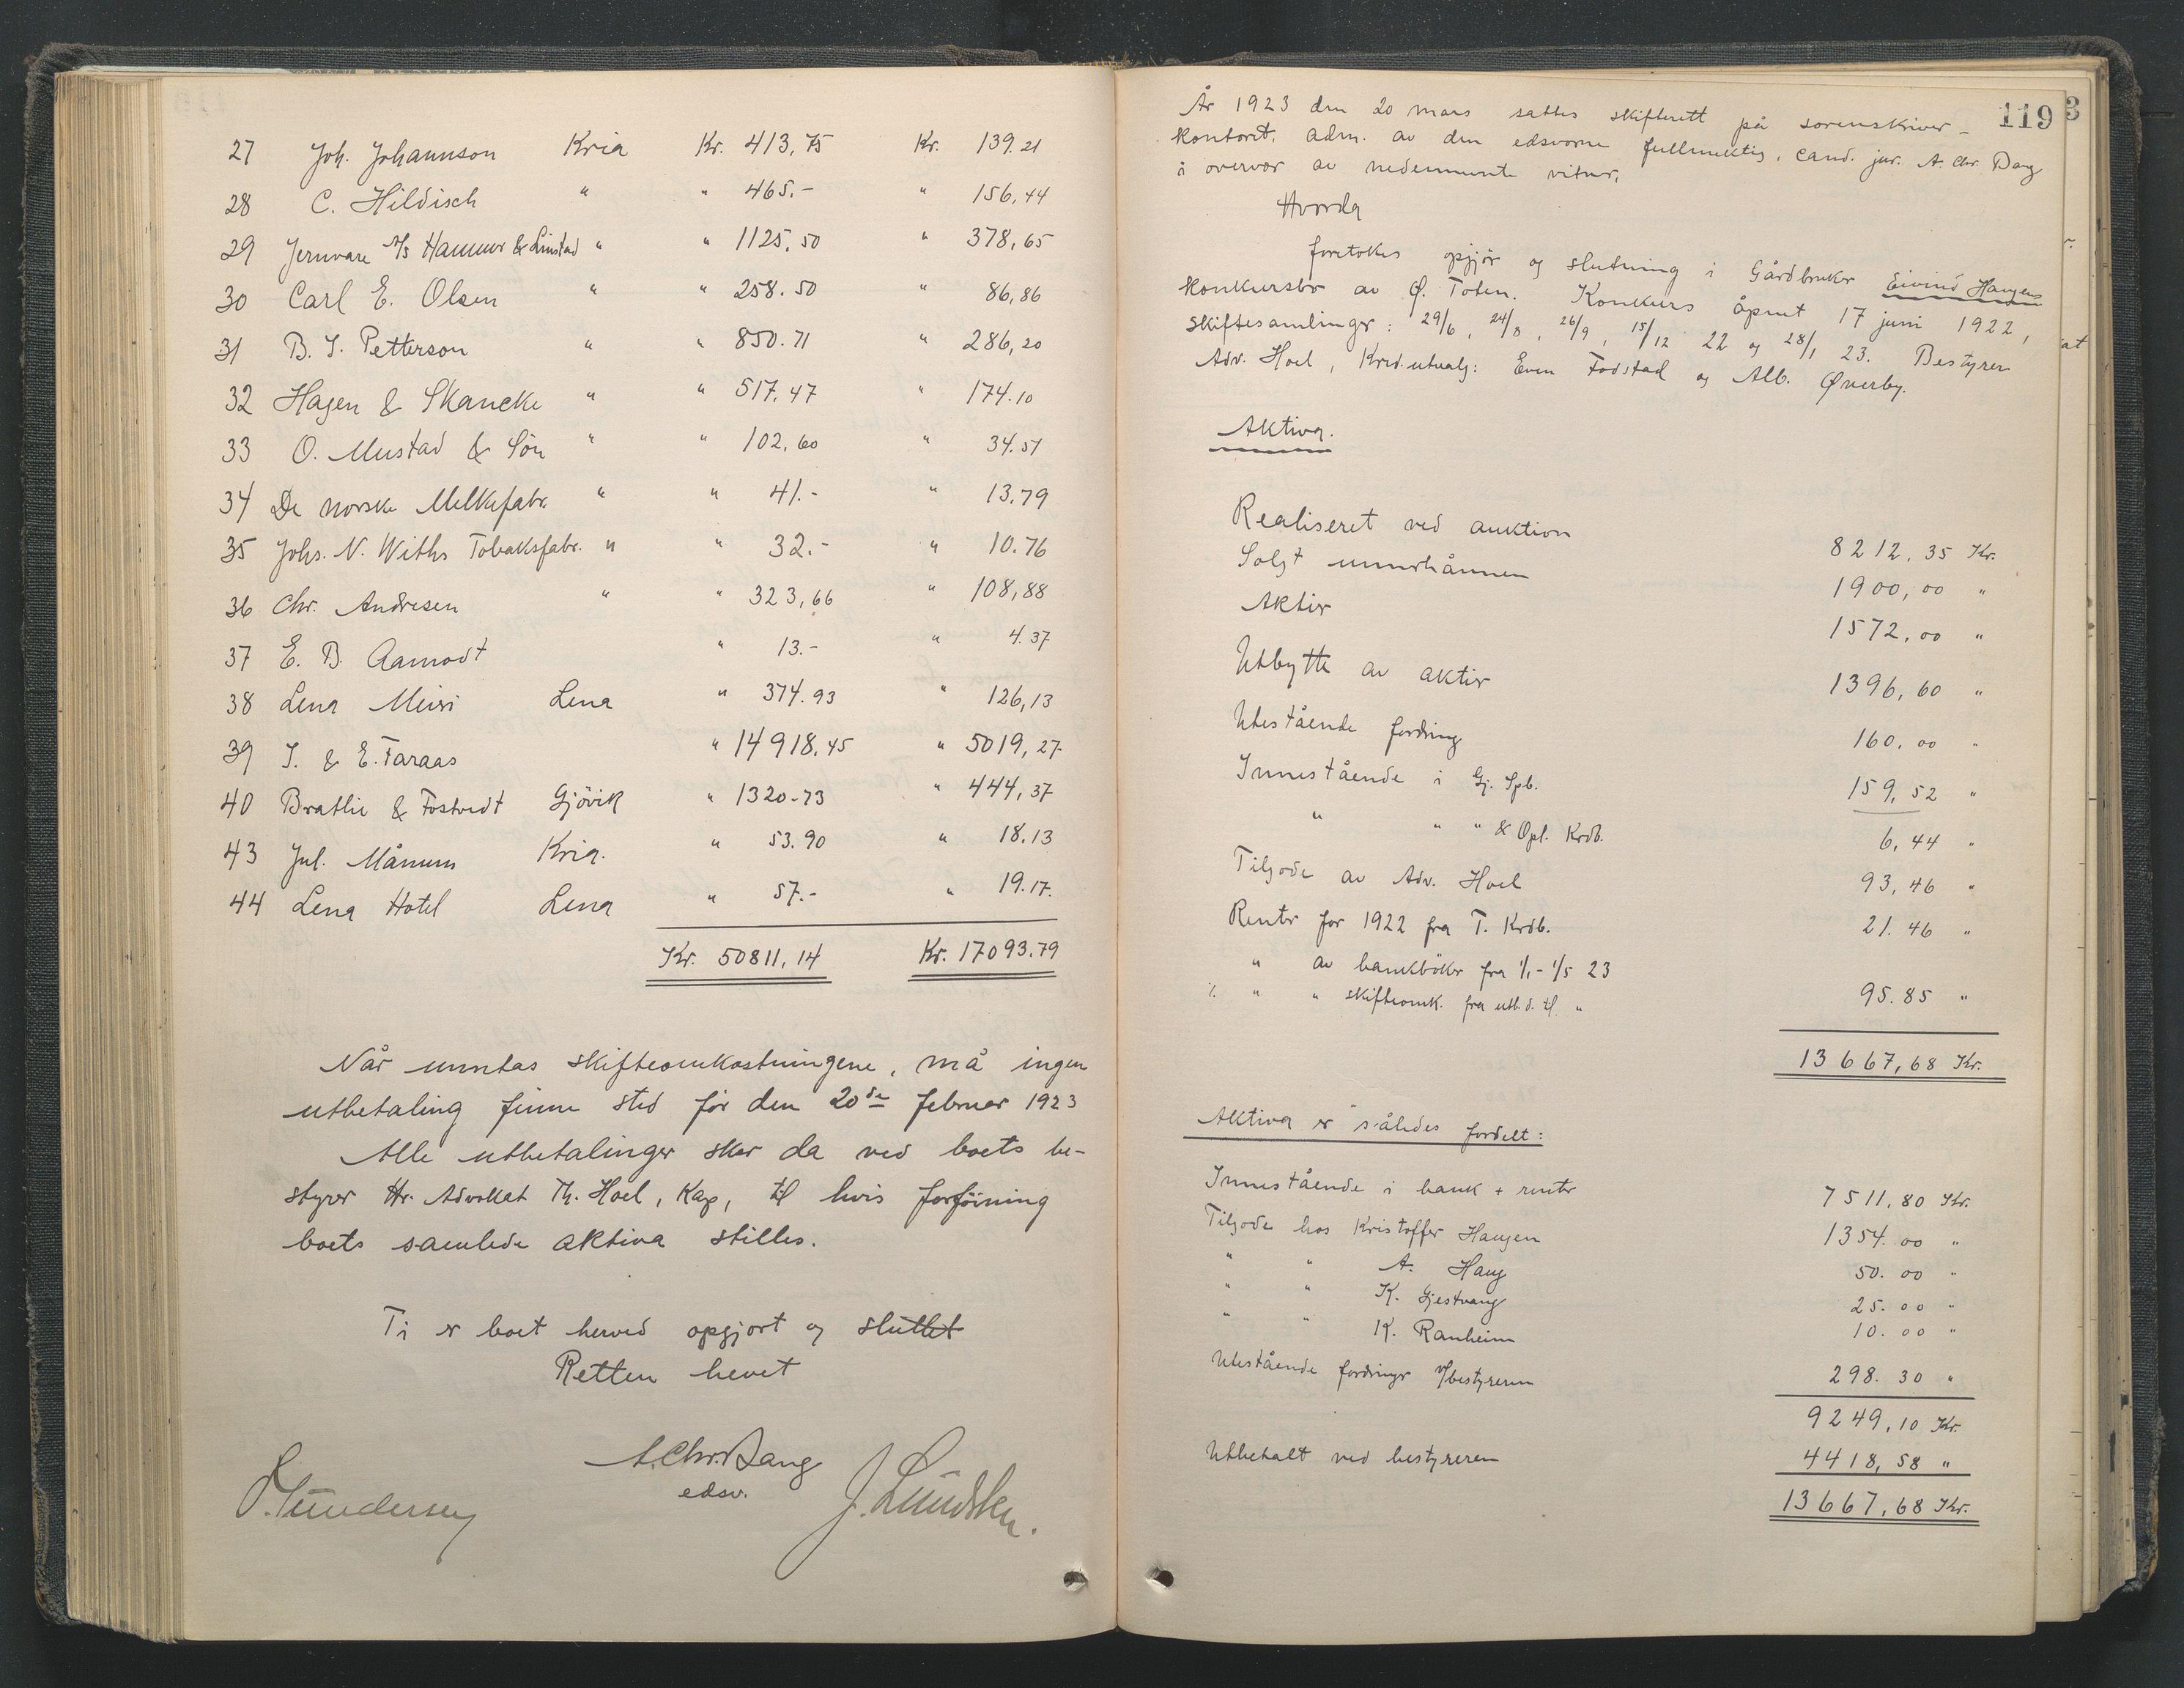 27 Joh. Johannson Kria Kr. 413,75 Kr. 139.21
28 C. Hildisch " " 465.- " 156,44
29 Jernvare A/s Hammer & Linstad " " 1125,50 " 378,65
30 Carl E. Olsen " " 258.50 " 86,86
31 B. S. Petterson " " 850.71 " 286,20
32 Hagen & Skancke " " 517,47 " 174.10
33 O. Mustad & Sön " " 102,60 " 34.51
34 De norske Melkefabr. " " 41.- " 13.79
35 Johs. N. Withs Tobaksfabr. " " 32.- " 10.76
36 Chr. Andresen " " 323,66 " 108,88
37 E. B. Aamodt " 13.- " 4.37
38 Lena Meieri Lena " 374.93 " 126,13
39 S. & E. Faraas " 14918,45 " 5019,27
40 Bratlie & Fostvedt Gjövik " 1320.73 " 444,37
43 Jul. Månum Kria. " 53.90 " 18.13
44 Lena Hotel Lena " 57.- " 19.17.
Kr. 50811,14 Kr. 17093.79
Når unntas skifteomkostningene, må ingen
utbetaling finne sted för den 20de februar 1923
Alle utbetalinger sker da ved boets be-
styrer Hr. Advokat Th. Hoel, Kap, til hvis forföining
boets samlede aktiva stilles.
Ti er boet herved opgjort og sluttet
Retten hevet
A. Chr. Bang
edsv.
O. Gundersen J. Lundsten.
119
År 1923 den 20 mars sattes skifterett på sorenskriver-
kontoret, adm. av den edsvorne fullmektig, cand. jur. A. Chr. Bang
i overvær av nedennevnte vitner,
Hvorda
foretokes opgjör og slutning i Gårdbruker Eivind Haugens
konkursbo av Ø. Toten. Konkurs åpnet 17 juni 1922,
skiftesamlinger: 29/6, 24/8, 26/9, 15/12 22 og 28/1 23. Bestyrer
Adv. Hoel, Kred.utvalg: Even Fodstad og Alb. Øverby.
Aktiva.
Realiseret ved auktion 8212,35 Kr.
Solgt unnerhånnen 1900,00 "
Aktier 1572,00 "
Utbytte av aktier 1396,60 "
Utestående fordring 160,00 "
Innestående i Gj. Spb. 159,52 "
" " " & Opl. Krdb. 6,44 "
Tilgode av Adv. Hoel 93,46 "
Renter for 1922 fra T. Krdb. 21.46 "
" av bankböker fra 1/1 - 1/5 23
% " " skifteomk. fra utb.d. til " 95.85 "
13667,68 Kr.
Aktiva er således fordelt:
Innestående i bank + renter 7511,80 Kr.
Tilgode hos Kristoffer Haugen 1354.00 "
" " A. Haug 50.00 "
" " K. Gjestvang 25.00 "
" " K. Ranheim 10.00 "
Utestående fordringer v/bestyreren 298.30 "
9249,10 Kr.
Utbetalt ved bestyreren 4418,58 "
13667,68 Kr.